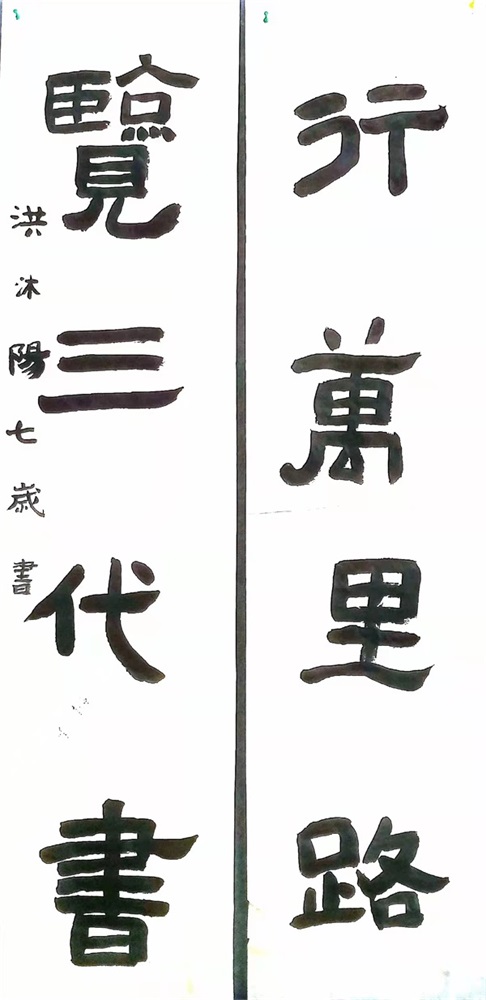 行萬里路
覽三代書
洪沐陽七歲書